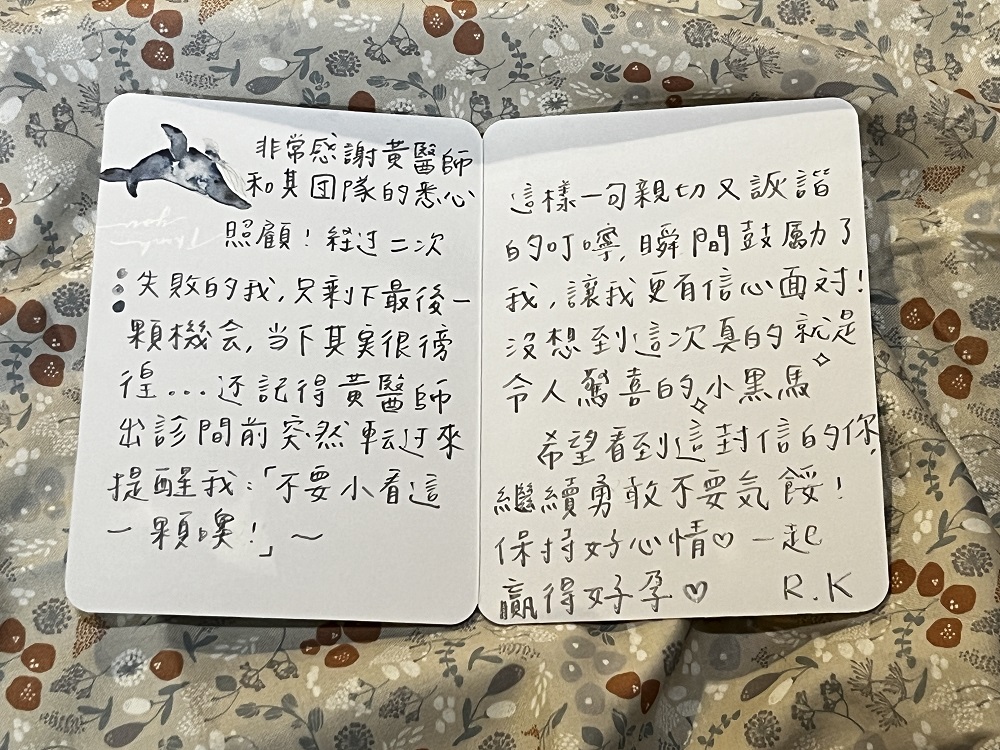 非常感謝黃醫師
和其团隊的悉心
照顧！経过二次
Thank
you
失敗的我,只剩下最後一
顆機会,当下其実很徬
徨...还記得黃醫師
出診間前突然転过來
提醒我:「不要小看這
一顆噢!」～
這樣一句親切又詼諧
的叮嚀,瞬間鼓勵了
我,讓我更有信心面对!
沒想到這次真的就是
令人驚喜的小黑馬
希望看到這封信的你,
繼續勇敢不要気餒!
保持好心情♡一起
贏得好孕♡ R.K